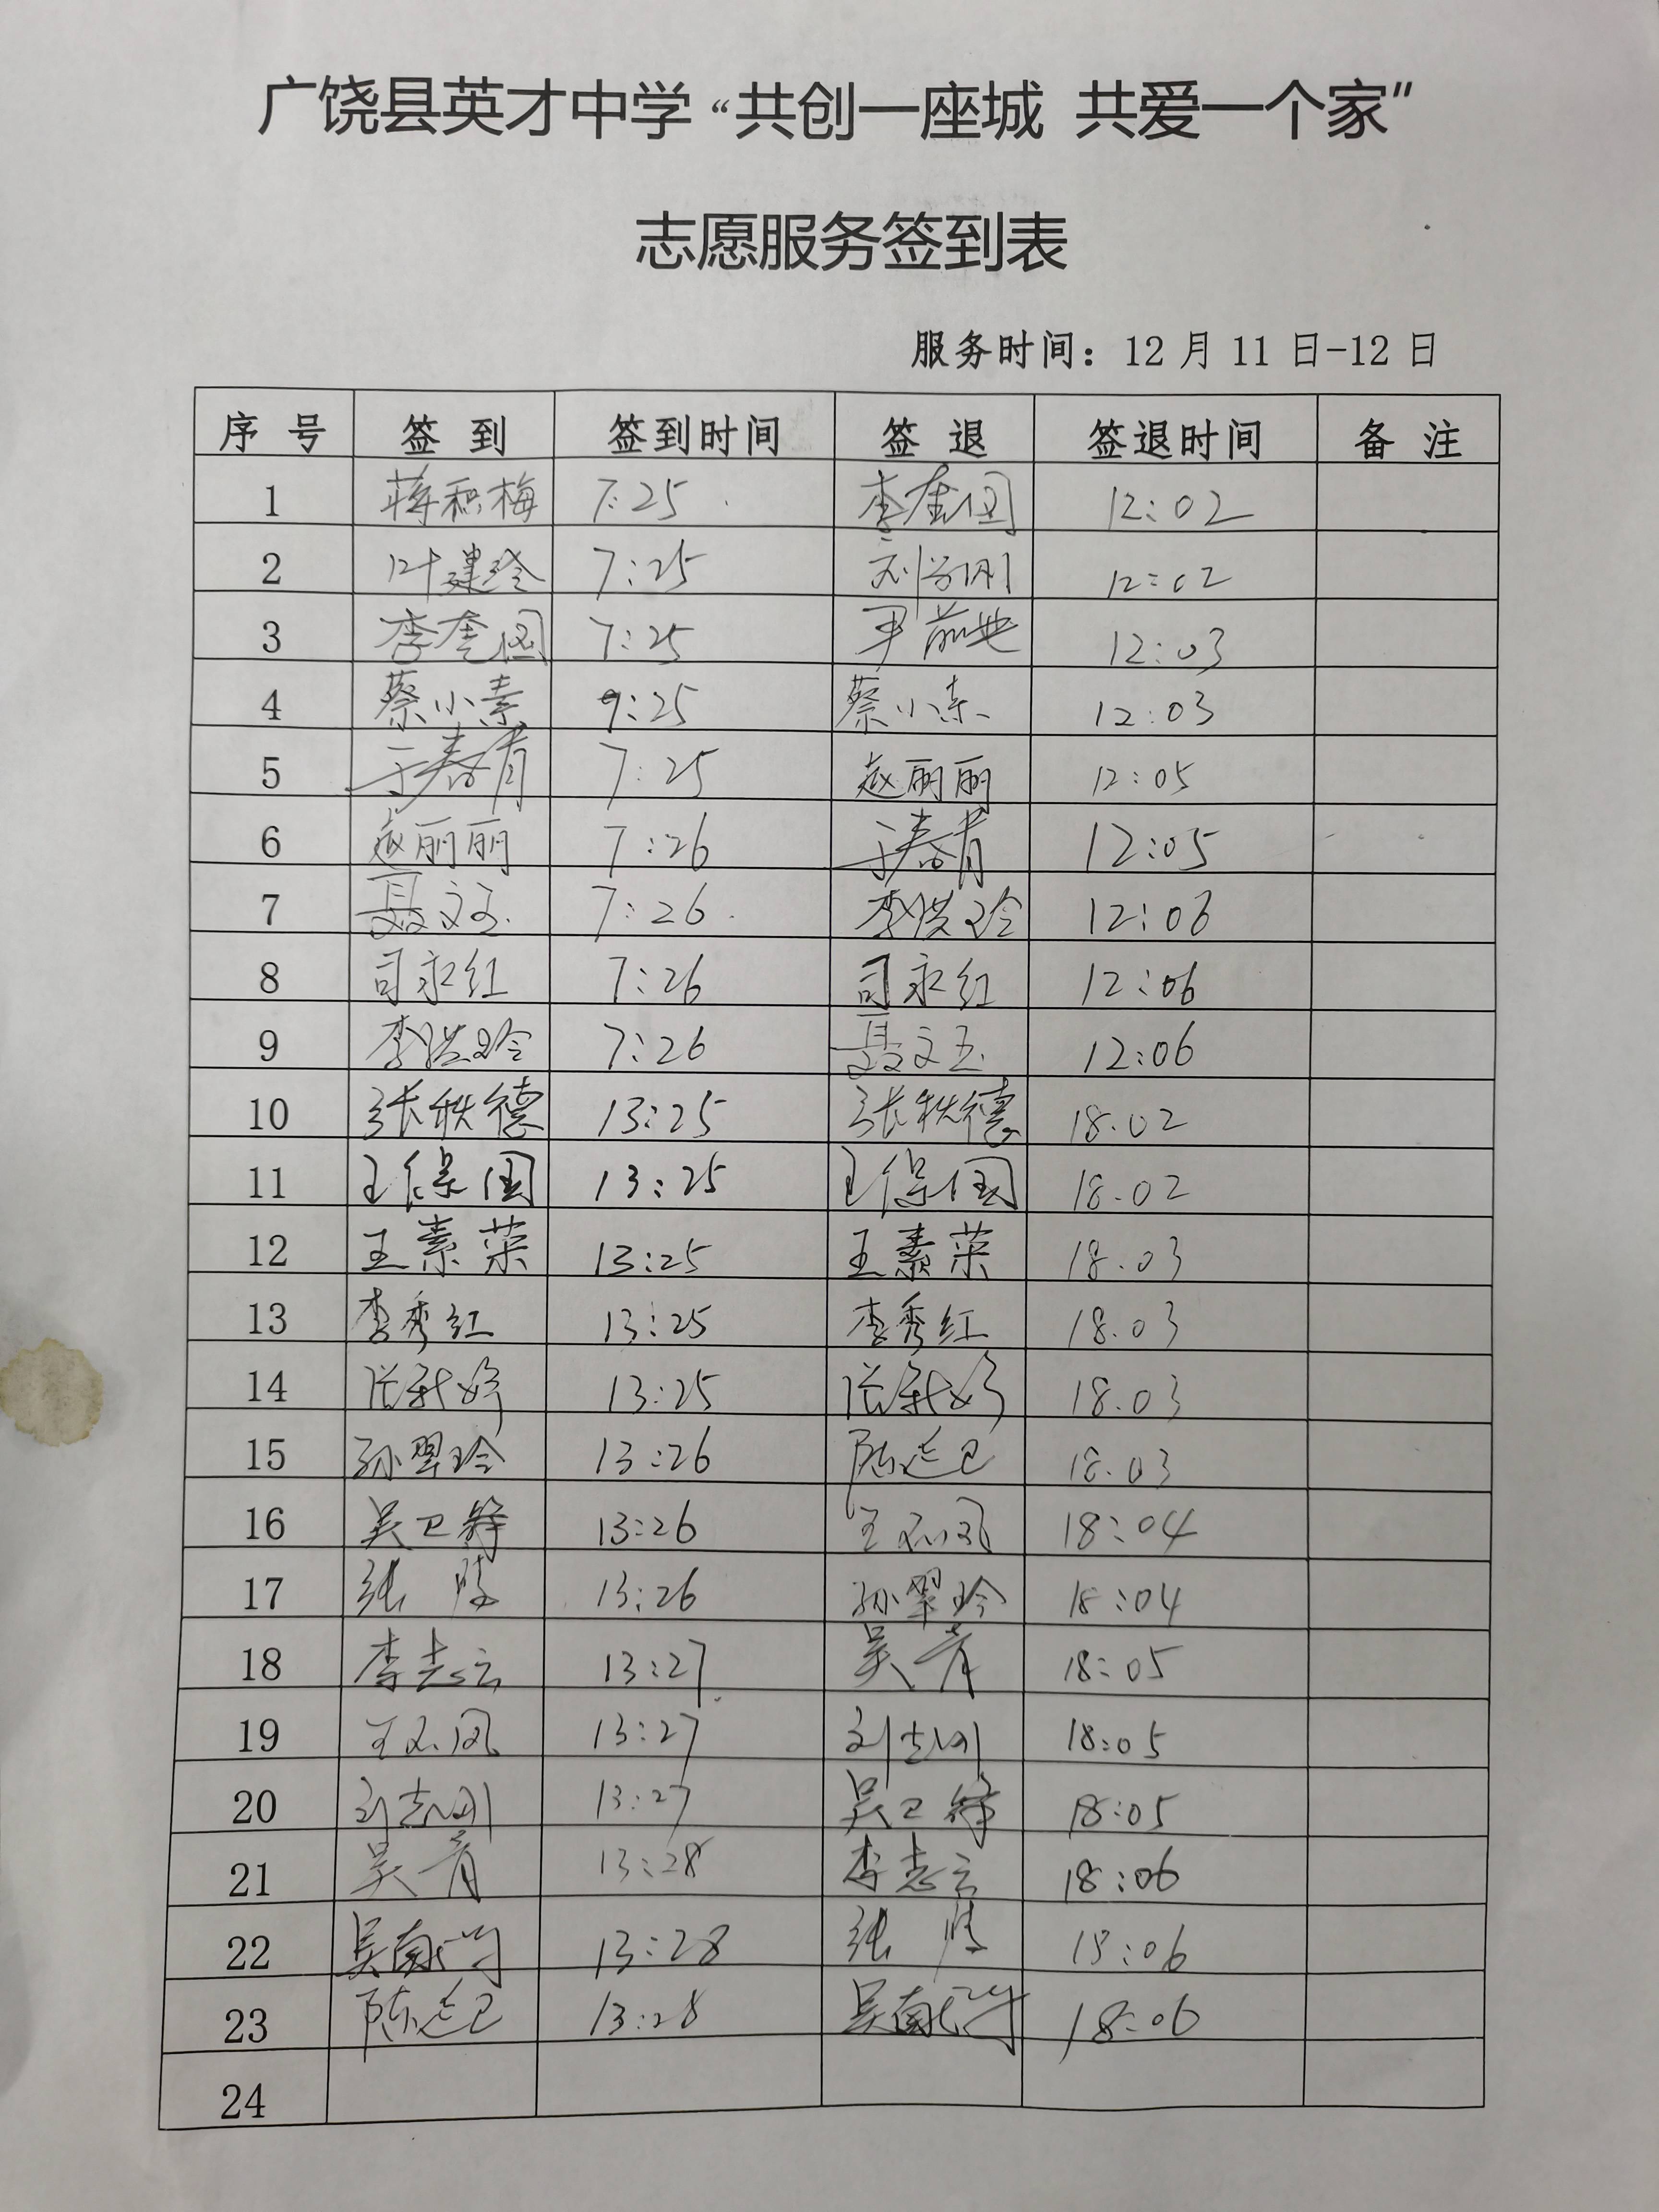 广饶县英才中学“共创一座城 共爱一个家”
志愿服务签到表
服务时间：12月11日-12日
序号 签到 签到时间 签退 签退时间 备注
1 蒋积梅 7:25 李奎国 12:02
2 叶建玲 7:25 12:02
3 李奎国 7:25 12:03
4 蔡小素 9:25 蔡小素 12:03
5 于春青 7:25 赵丽丽 12:05
6 赵丽丽 7:26 于春青 12:05
7 聂文玉 7:26 李洪玲 12:06
8 司永红 7:26 司永红 12:06
9 李洪玲 7:26 聂文玉 12:06
10 张秩德 13:25 张秩德 18.02
11 王保国 13:25 王保国 18.02
12 王素菜 13:25 王素菜 18.03
13 李秀红 13:25 李秀红 18.03
14 张新婷 13:25 张新婷 18.03
15 孙翠玲 13:26 陈延卫 18.03
16 吴卫锋 13:26 18:04
17 张 13:26 孙翠玲 18:04
18 李志云 13:27 吴青 18:05
19 13:27 刘志刚 18:05
20 刘志刚 13:27 吴卫锋 18:05
21 吴青 13:28 李志云 18:06
22 吴 13:28 张 18:06
23 陈延卫 13:28 吴 18:06
24